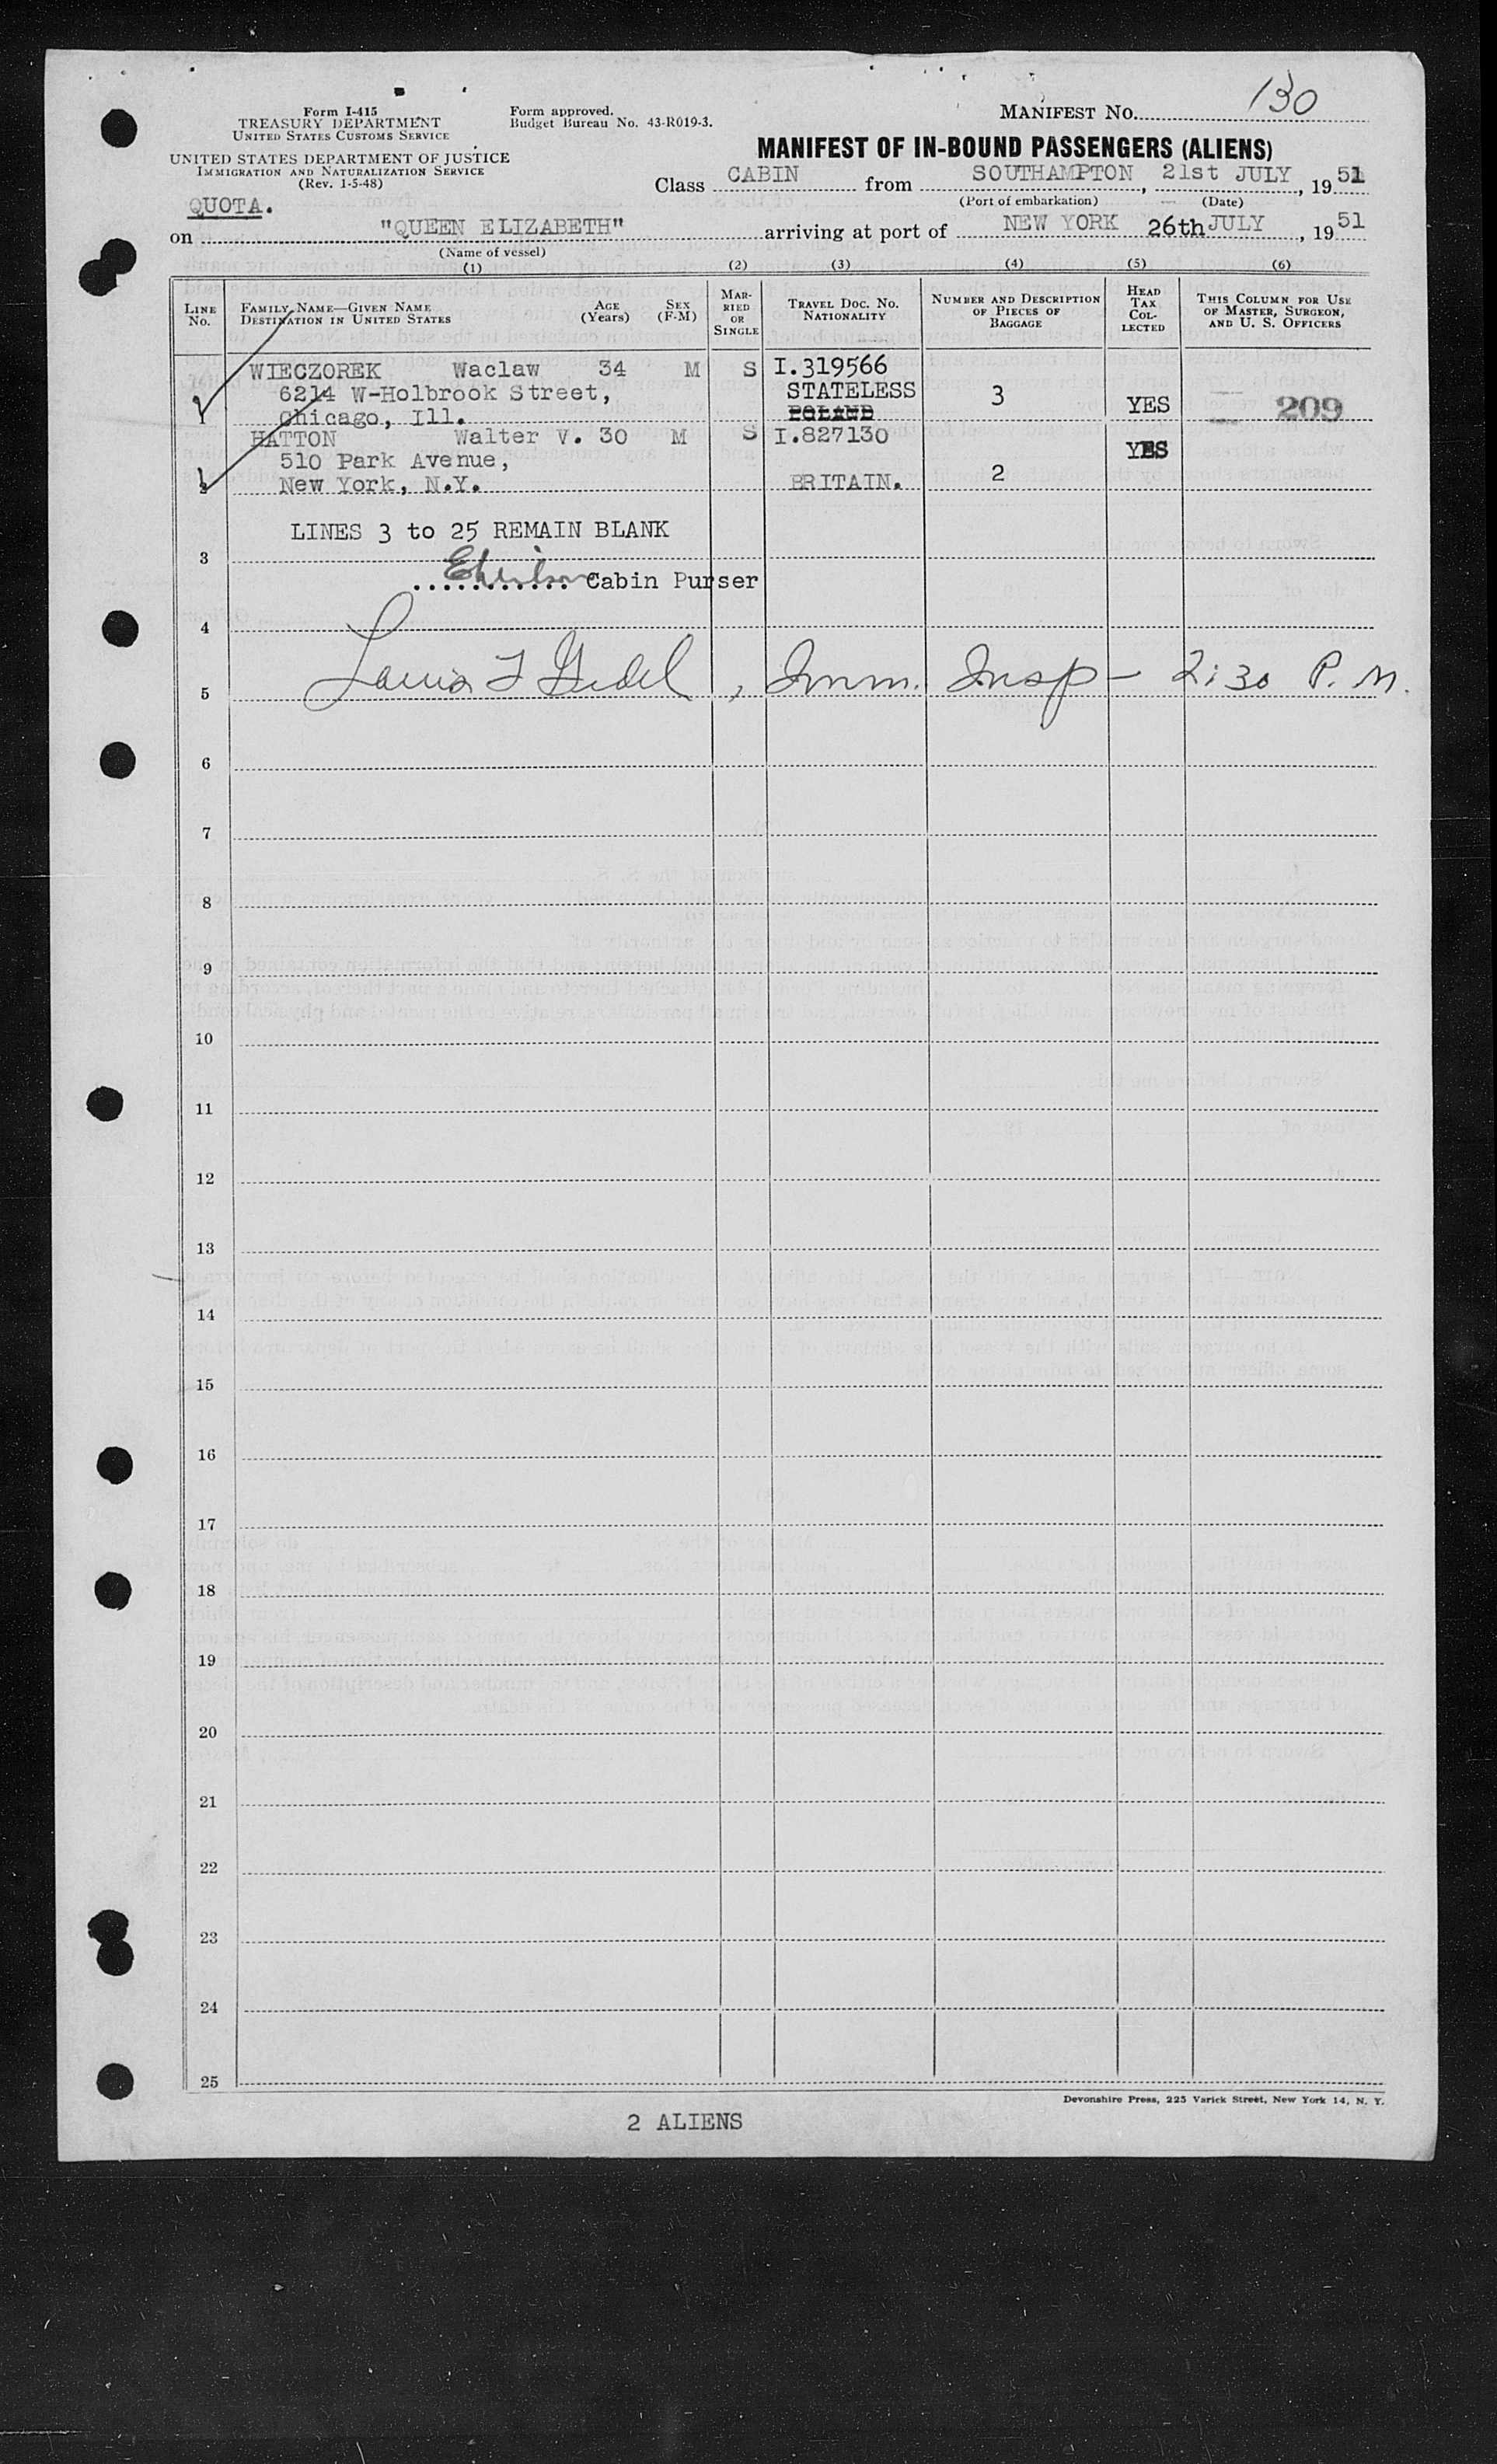 130
Form I-415
TREASURY DEPARTMENT
UNITED STATES CUSTOMS SERVICE
Form approved.
Budget Bureau No. 43-R019-3.
MANIFEST NO.
UNITED STATES DEPARTMENT OF JUSTICE
IMMIGRATION AND NATURALIZATION SERVICE
(Rev. 1-5-48)
MANIFEST OF IN-BOUND PASSENGERS (ALIENS)
Class CABIN from SOUTHAMPTON, 21st JULY, 1951
(Port of embarkation) (Date)
QUOTA.
on "QUEEN ELIZABETH" arriving at port of NEW YORK 26th JULY, 1951
(Name of vessel)
(1) (2) (3) (4) (5) (6)
LINE No.
FAMILY NAME—GIVEN NAME
DESTINATION IN UNITED STATES
AGE (Years)
SEX (F-M)
MARRIED OR SINGLE
TRAVEL DOC. NO.
NATIONALITY
NUMBER AND DESCRIPTION OF PIECES OF BAGGAGE
HEAD TAX COLLECTED
THIS COLUMN FOR USE OF MASTER, SURGEON, AND U. S. OFFICERS
WIECZOREK Waclaw 34 M S I.319566
6214 W-Holbrook Street, STATELESS 3
1 Chicago, Ill. POLAND YES 209
HATTON Walter V. 30 M S I.827130 YES
510 Park Avenue,
2 New York, N.Y. BRITAIN. 2
LINES 3 to 25 REMAIN BLANK
3
Cabin Purser
4
5 , Imm. Insp - 2:30 P.M.
6
7
8
9
10
11
12
13
14
15
16
17
18
19
20
21
22
23
24
25
Devonshire Press, 225 Varick Street, New York 14, N. Y.
2 ALIENS